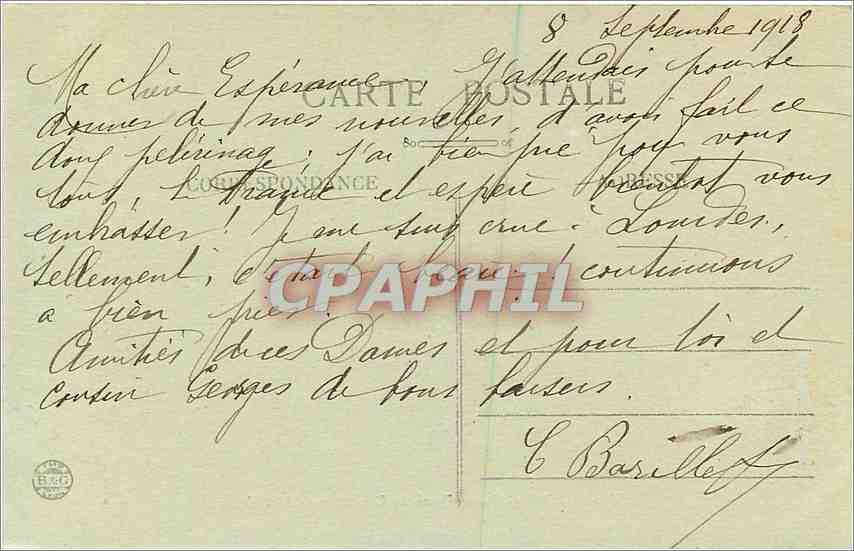 8 Septembre 1918
Ma chère Espérance, J'attendais pour te
CARTE POSTALE
donner de mes nouvelles, d'avoir fait ce
pélérinage; j'ai bien prié pour vous
CORRESPONDANCE
ADRESSE
tous, la France et espère bientôt vous
embrasser! Je me suis crue à Lourdes,
tellement, c'était beau! continuons
CPAPHIL
à bien prier.
Amitiés de ces Dames et pour toi et
cousin Georges de bons baisers.
B&G